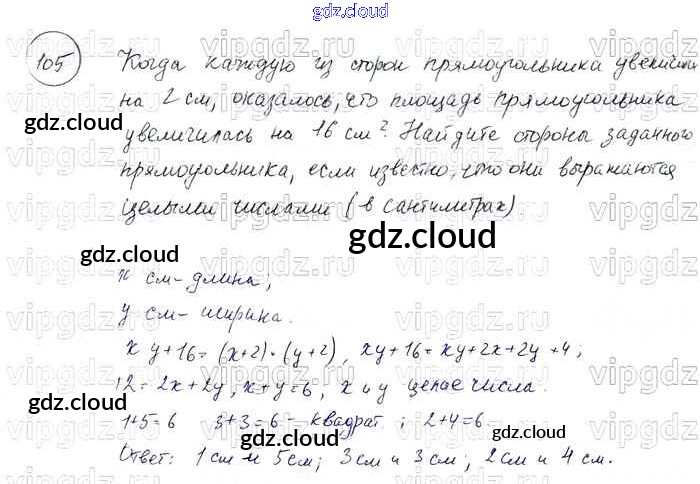 gdz.cloud
105 Когда каждую из сторон прямоугольника увеличили
на 2 см, оказалось, что площадь прямоугольника
увеличилась на 16 см². Найдите стороны заданного
прямоугольника, если известно, что они выражаются
целыми числами (в сантиметрах).
x см - длина;
y см - ширина.
xy+16=(x+2)·(y+2), xy+16=xy+2x+2y+4;
12=2x+2y, x+y=6, x и y целые числа.
1+5=6 3+3=6 - квадрат; 2+4=6
Ответ: 1 см и 5 см; 3 см и 3 см; 2 см и 4 см.
gdz.cloud
gdz.cloud
gdz.cloud
gdz.cloud
gdz.cloud
gdz.cloud
gdz.cloud
vipgdz.ru